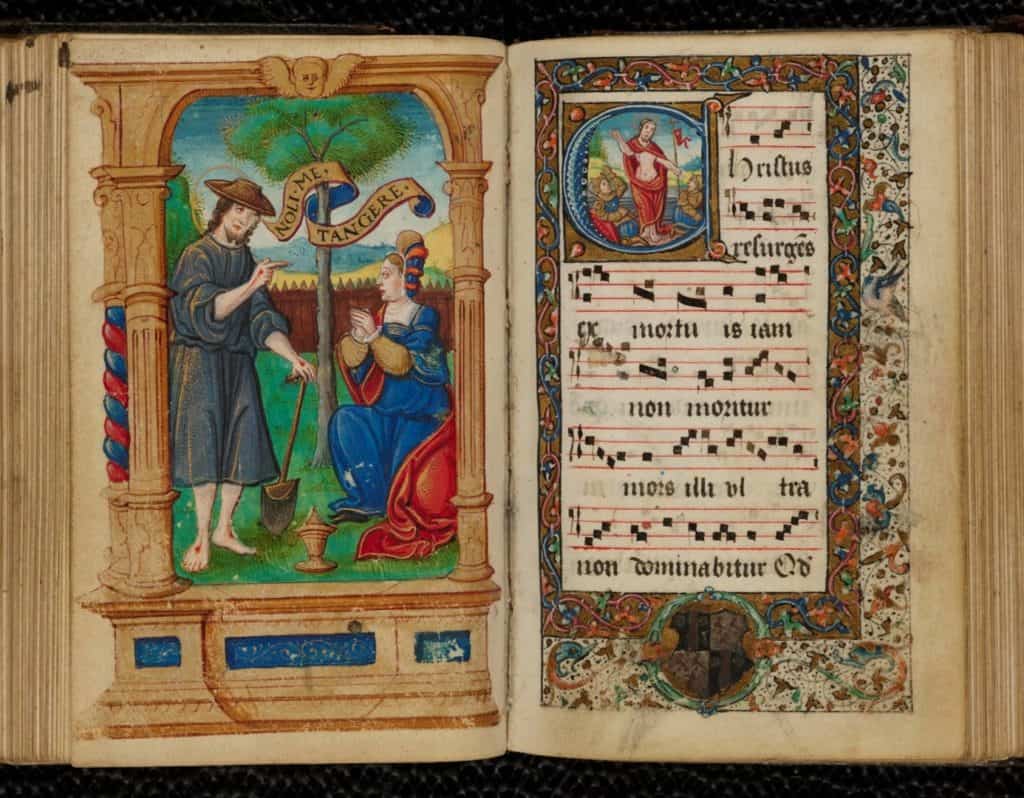 NOLI · ME ·
TANGERE ·
Christus
resurgēs
ex mortu is iam
non moritur
mors illi vl tra
non dominabitur Qd̕